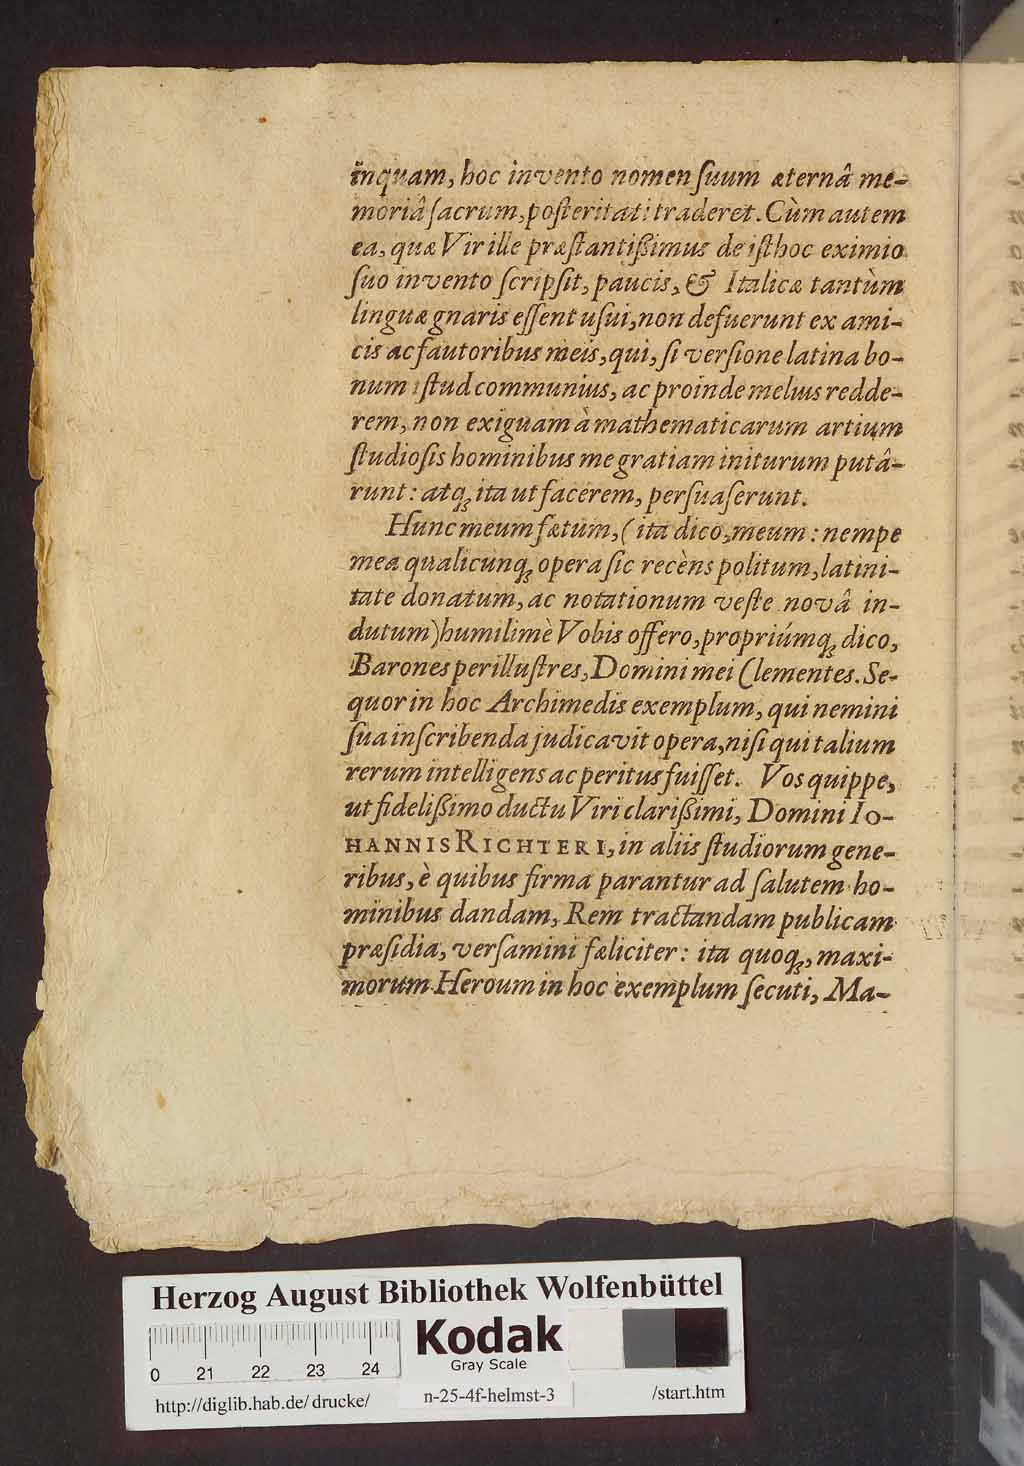 inquam, hoc invento nomen ſuum æternâ me-
moriâ ſacrum, poſteritati traderet. Cùm autem
ea, quæ Vir ille præſtantißimus de iſthoc eximio
ſuo invento ſcripſit, paucis, & Italicæ tantùm
linguæ gnaris eſſent uſui, non defuerunt ex ami-
cis ac fautoribus meis, qui, ſi verſione latina bo-
num iſtud communius, ac proinde melius redde-
rem, non exiguam à mathematicarum artium
ſtudioſis hominibus me gratiam initurum putâ-
runt: atq; ita ut facerem, perſuaſerunt.
Hunc meum fætum, (ita dico, meum: nempe
mea qualicunq; opera ſic recèns politum, latini-
tate donatum, ac notationum veſte novâ in-
dutum) humilimè Vobis offero, propriúmq; dico,
Barones perilluſtres, Domini mei Clementes. Se-
quor in hoc Archimedis exemplum, qui nemini
ſua inſcribenda judicavit opera, niſi qui talium
rerum intelligens ac peritus fuiſſet. Vos quippe,
ut fidelißimo ductu Viri clarißimi, Domini IO-
HANNIS RICHTERI, in aliis ſtudiorum gene-
ribus, è quibus firma parantur ad ſalutem ho-
minibus dandam, Rem tractandam publicam
præſidia, verſamini fæliciter: ita quoq;, maxi-
morum Heroum in hoc exemplum ſecuti, Ma-
Herzog August Bibliothek Wolfenbüttel
Kodak
Gray Scale
0 21 22 23 24
http://diglib.hab.de/drucke/ n-25-4f-helmst-3 /start.htm